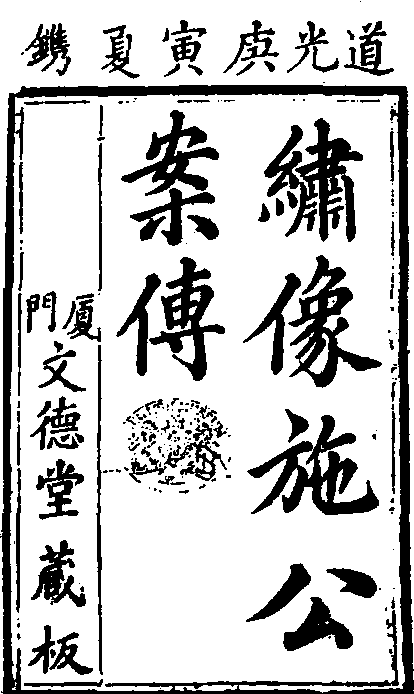 道光庚寅夏鐫
繡像施公
案傳
厦門文德堂藏板